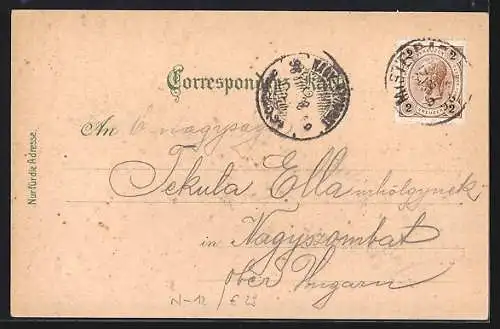 Correspondenz-Karte
Nur für die Adresse.
2 2
2 2
An Ő nagysága
Tekula Ella úrhölgynek
in Nagyszombat
ober Ungarn
N-12 / € 22